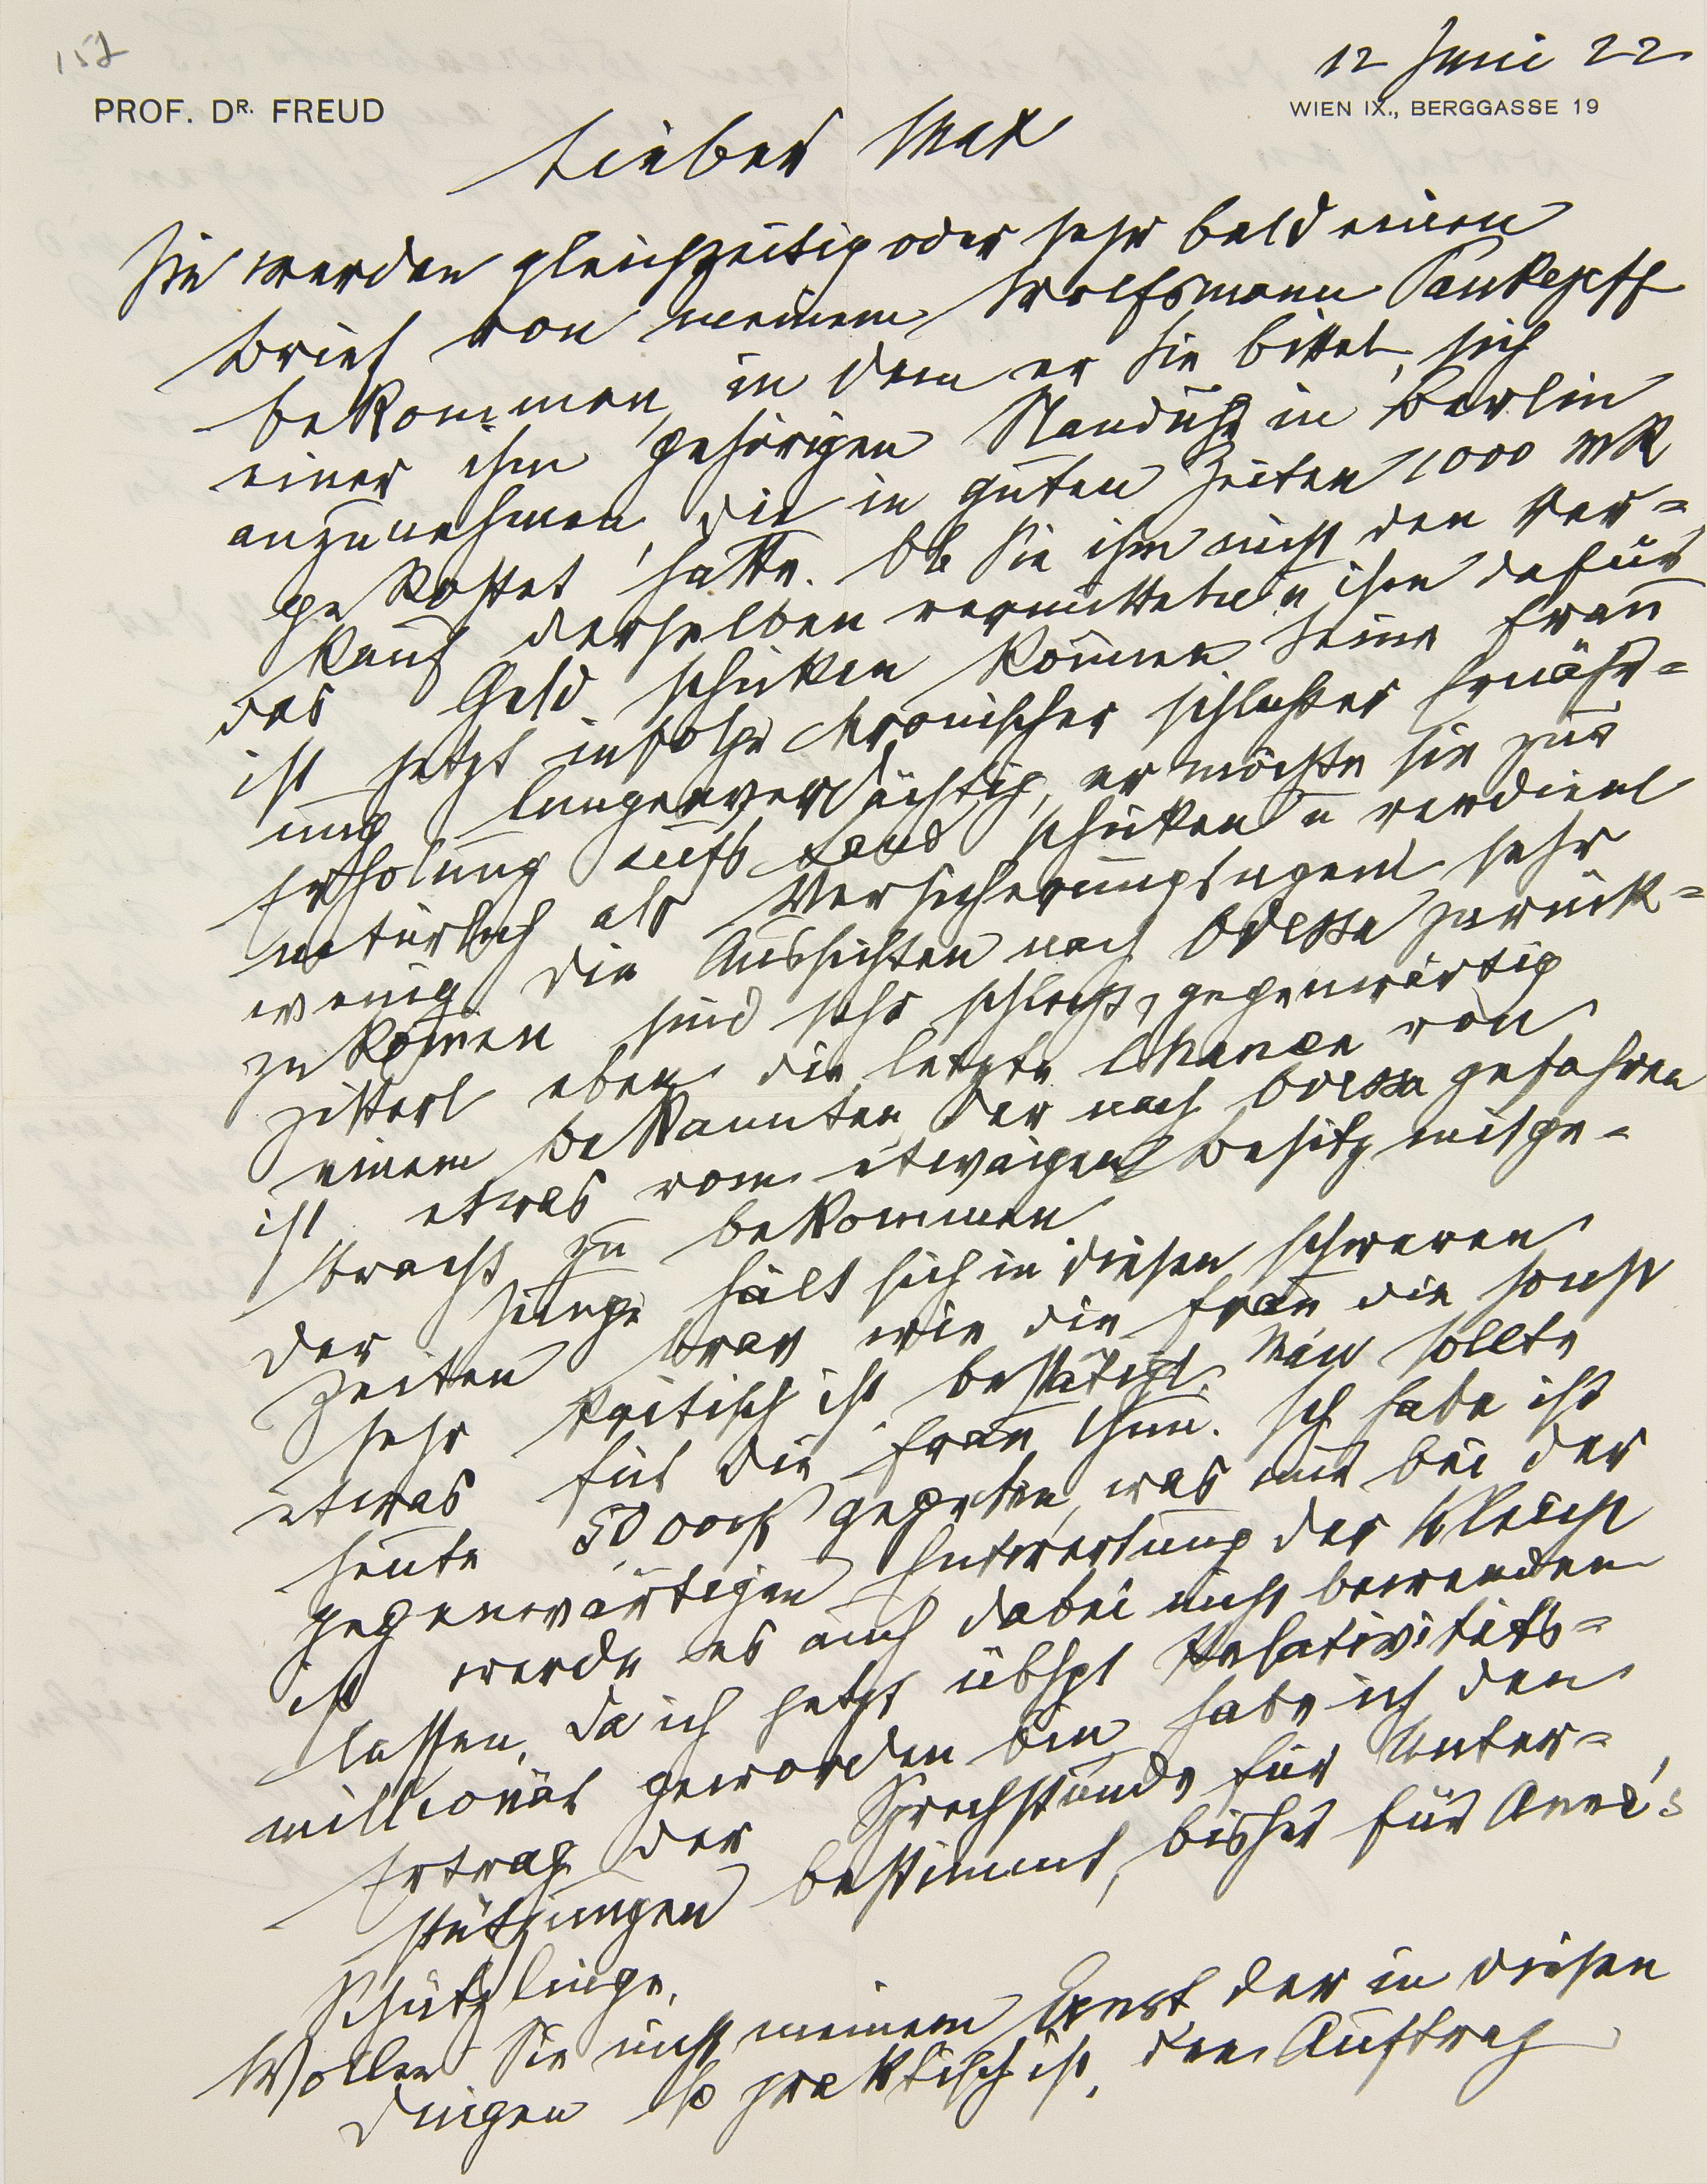 157
12 Juni 22
PROF. DR. FREUD
WIEN IX., BERGGASSE 19
Lieber Max
Sie werden gleichzeitig oder sehr bald einen
Brief von meinem Wolfsmann Pankejeff
bekommen, in dem er Sie bittet, sich
einer ihm gehörigen Standuhr in Berlin
anzunehmen, die in guten Zeiten 1000 Mk
gekostet hatte. Ob Sie ihm nicht den Ver-
kauf derselben vermitteln u ihm dafür
das Geld schicken können. Seine Frau
ist jetzt infolge chronischer schlechter Ernähr-
ung lungenverdächtig, er möchte sie zur
Erholung aufs Land schicken u verdient
natürlich als Versicherungsagent sehr
wenig. Die Aussichten nach Odessa zurück-
zukommen sind sehr schlecht, gegenwärtig
zittert eben die letzte Chance von
einem Bekannten, der nach Odessa gefahren
ist etwas vom etwaigen Besitz mitge-
bracht zu bekommen
Der Junge hält sich in diesen schweren
Zeiten brav wie die Frau die sonst
sehr kritisch ist, bestätigt. Man sollte
etwas für die Frau thun. Ich habe ihr
heute 50 000 K gegeben, was mir bei der
gegenwärtigen Entwertung der
ist werde es auch dabei nicht bewenden
lassen. Da ich jetzt Relativitäts-
millionär geworden bin, habe ich den
Ertrag der Sprechstunde für Unter-
stützungen bestimmt, bisher für Anna's
Schützlinge.
Wollen Sie nicht meinem Ernst der in diesen
Dingen so praktisch ist, den Auftrag